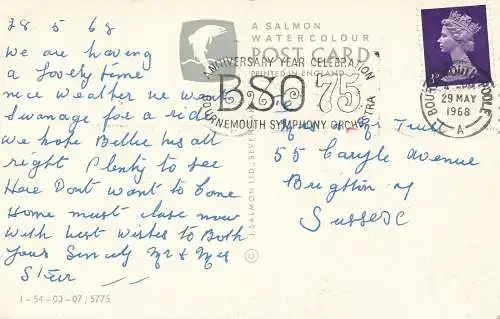 28 5 68
We are having
a lovely time
nice weather we went
Swanage for a ride
we hope Billie has all
right Plenty to see
Here Dont want to Come
Home must close now
With best wishes to Both
Yours Sincely Mr & Mrs
A SALMON
WATERCOLOUR
POST CARD
PRINTED IN ENGLAND
ANNIVERSARY YEAR CELEBRATION
BSO 75
BOURNEMOUTH SYMPHONY ORCHESTRA
BOURNEMOUTH-POOLE
PM
29 MAY
1968
A
Mr & Mrs
55 Carlyle Avenue
Brighton
Sussex
J. SALMON LTD., SEVENOAKS
©
1-54-03-07/5775